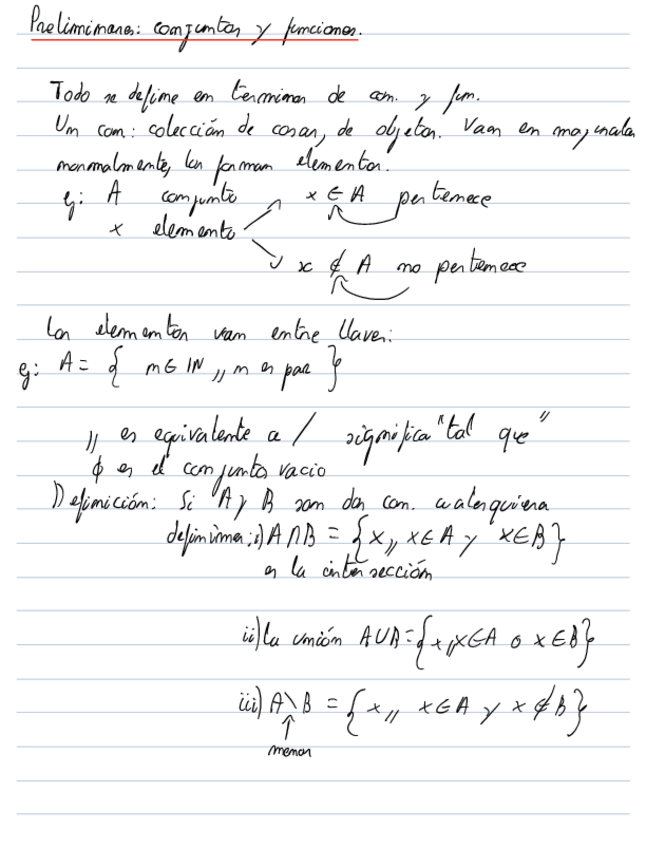 Preliminares: conjuntos y funciones.
Todo se define en terminos de con. y fun.
Un con: colección de cosas, de objetos. Van en mayusculas
normalmente, los forman elementos.
eg: A conjunto x ∈ A pertenece
x elemento
x ∉ A no pertenece
Los elementos van entre llaves:
eg: A = { n ∈ IN ,, n es par }
,, es equivalente a / significa "tal que"
ϕ es el conjunto vacio
Definición: Si A y B son dos con. cualesquiera
definimos: i) A ∩ B = { x ,, x ∈ A y x ∈ B }
es la intersección
ii) La unión A ∪ B = { x ,, x ∈ A o x ∈ B }
iii) A \ B = { x ,, x ∈ A y x ∉ B }
menos